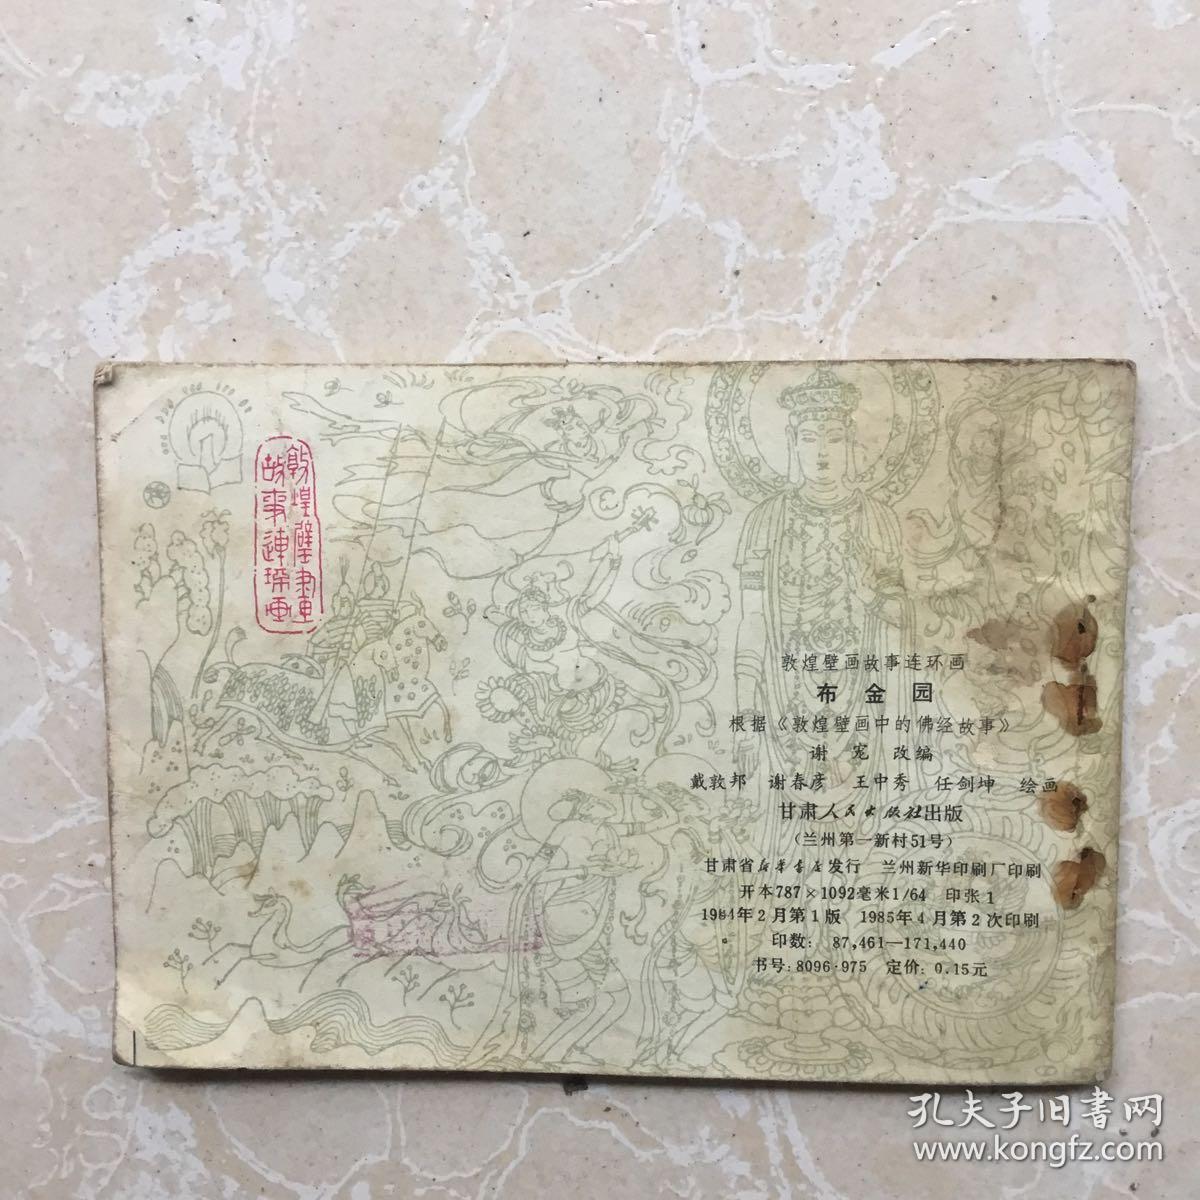 敦煌壁画
故事连环画
敦煌壁画故事连环画
布金园
根据《敦煌壁画中的佛经故事》
谢宠 改编
戴敦邦 谢春彦 王中秀 任剑坤 绘画
甘肃人民出版社出版
（兰州第一新村51号）
甘肃省新华书店发行 兰州新华印刷厂印刷
开本787×1092毫米1/64 印张1
1984年2月第1版 1985年4月第2次印刷
印数：87,461—171,440
书号：8096·975 定价：0.15元
孔夫子旧书网
www.kongfz.com